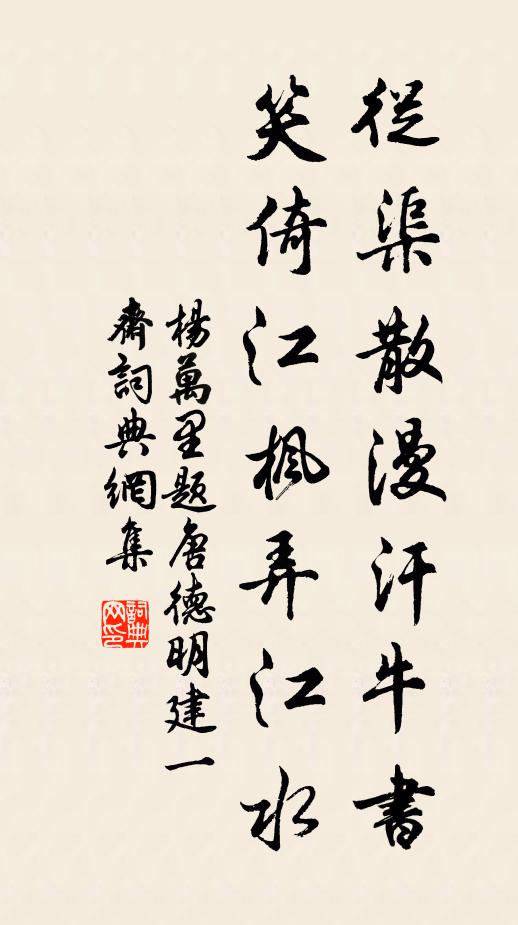 從渠散漫汗牛書
笑倚江楓弄江水
楊萬里題唐德明建一
齋詞典網集
詞典網印